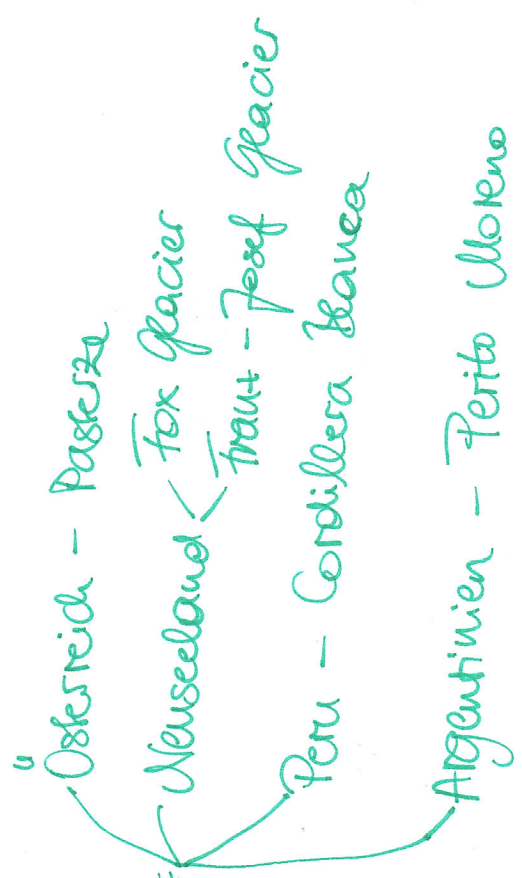 Österreich - Pasterze
Neuseeland < Fox Glacier
Franz-Josef Glacier
Peru - Cordillera Blanca
Argentinien - Perito Moreno